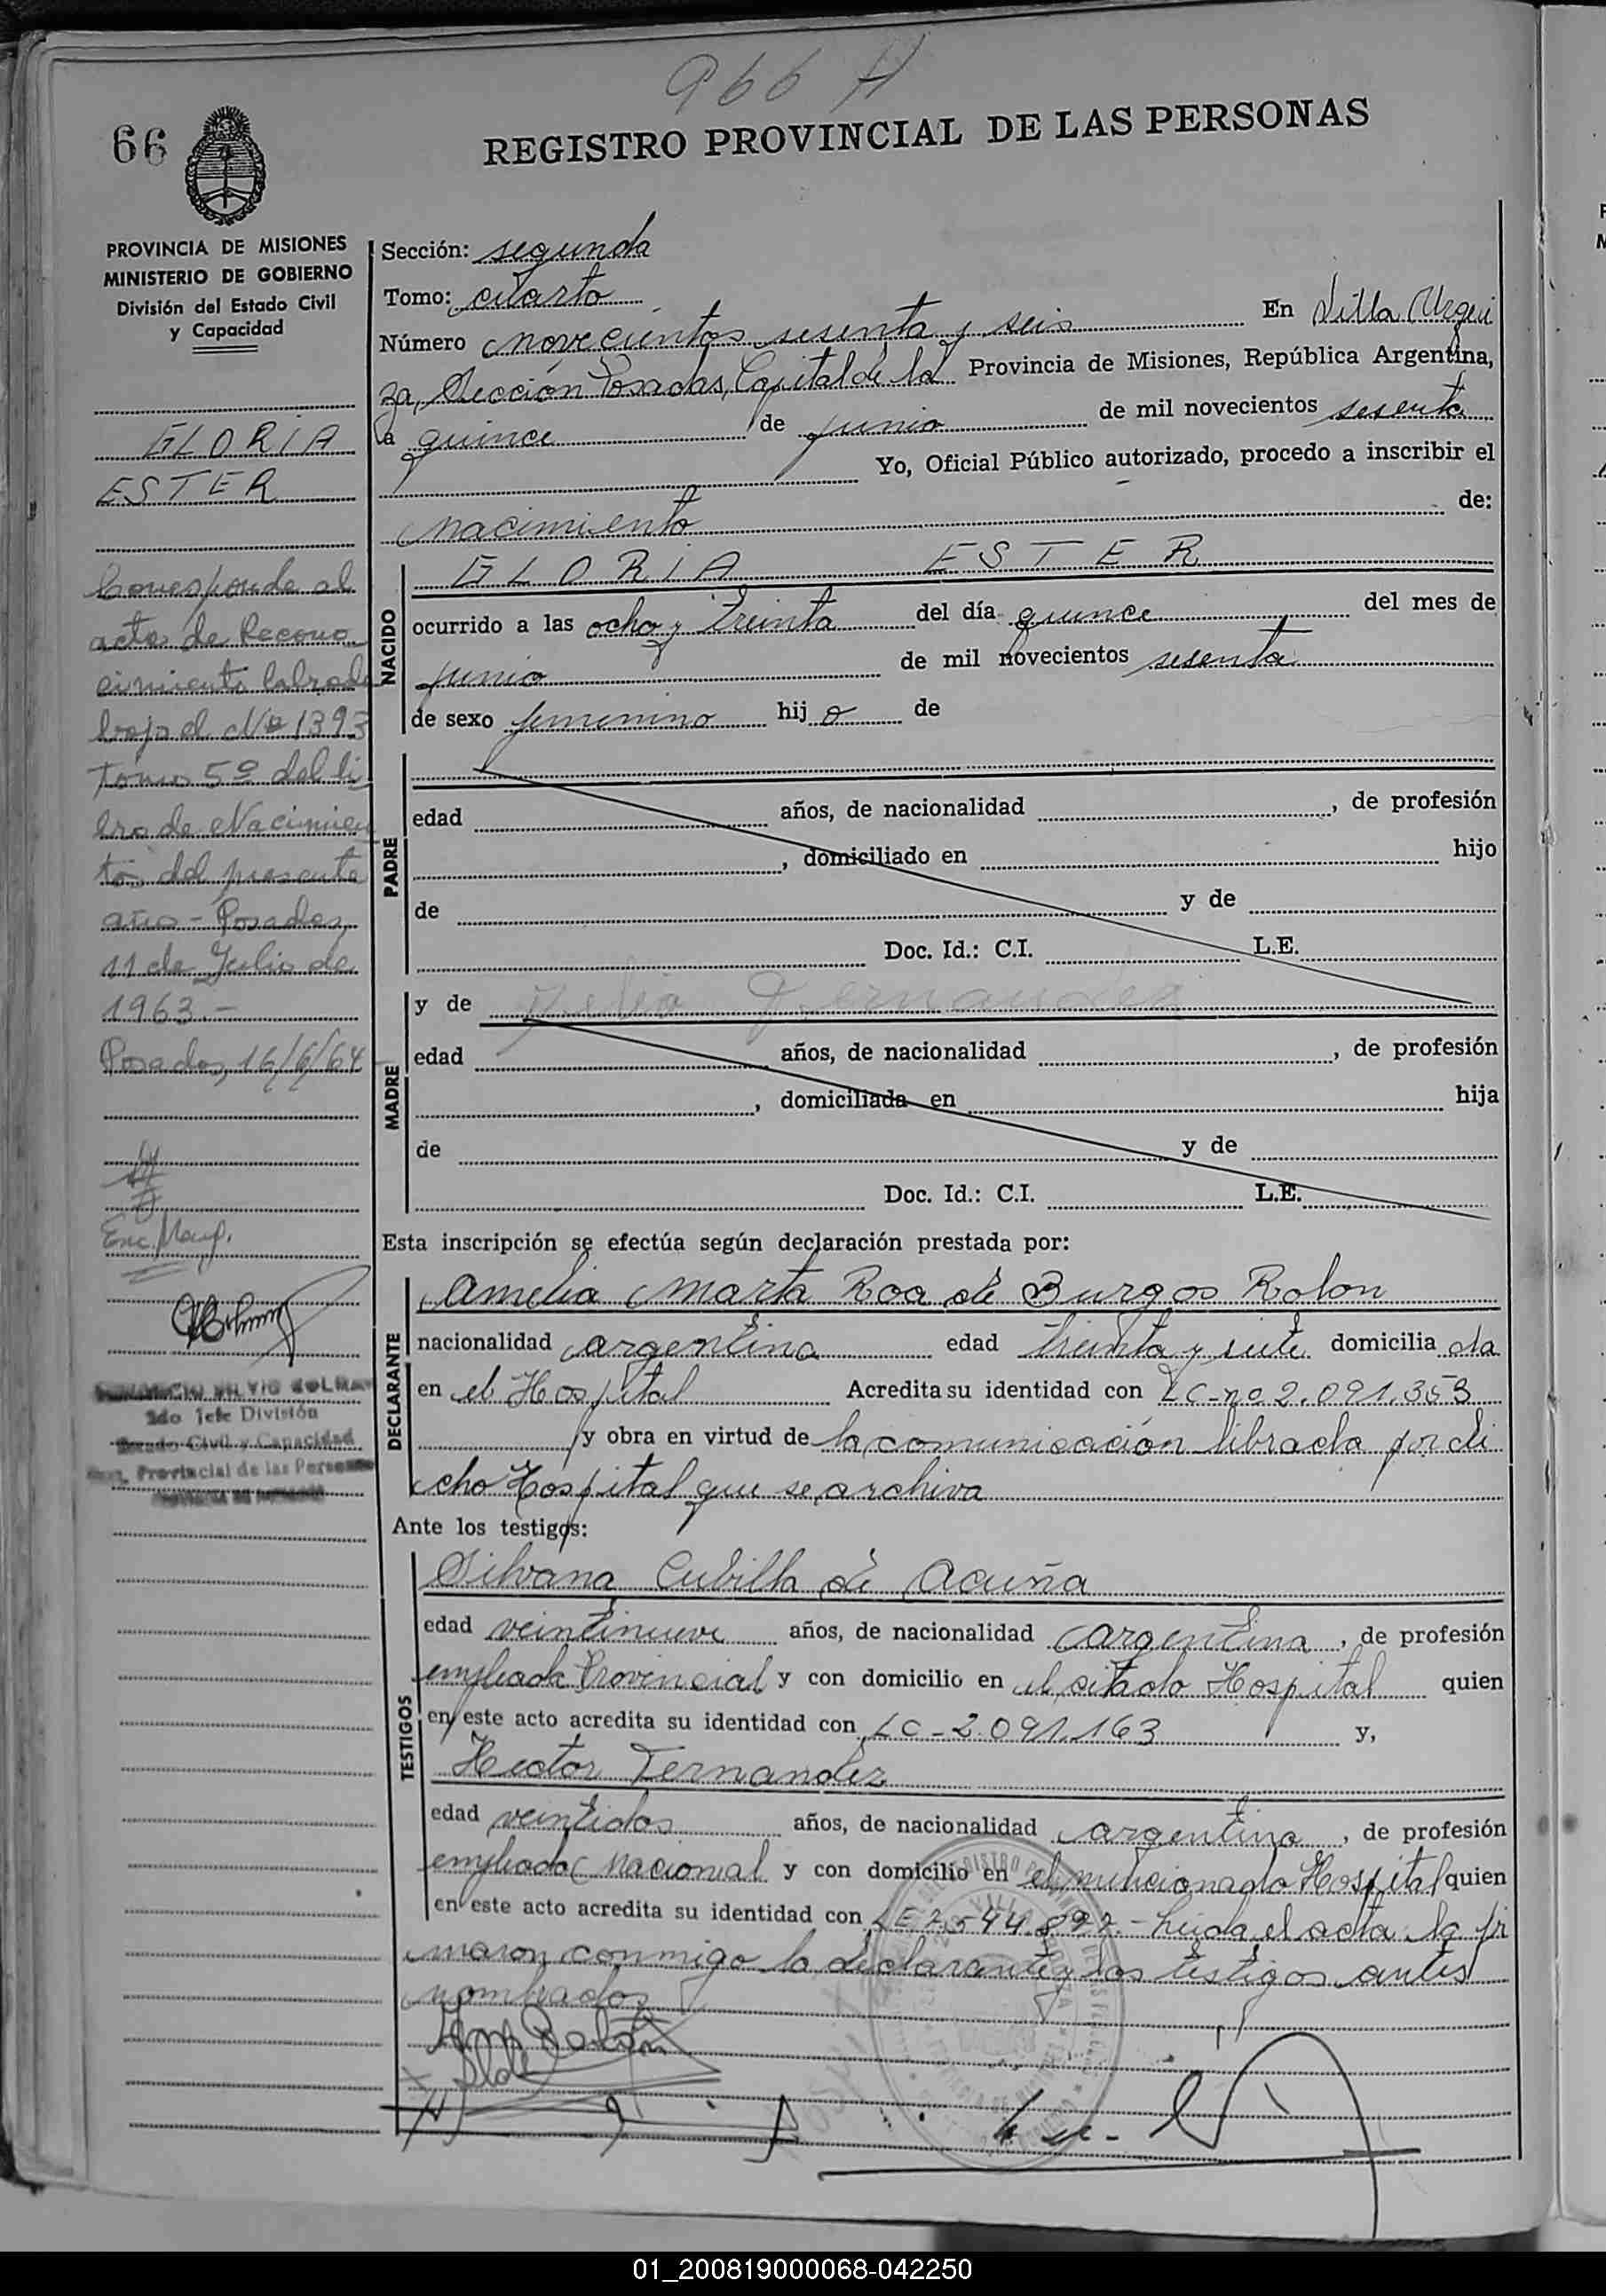 966 H
66
REGISTRO PROVINCIAL DE LAS PERSONAS
PROVINCIA DE MISIONES
MINISTERIO DE GOBIERNO
División del Estado Civil
y Capacidad
GLORIA
ESTER
Corresponde al
acta de Recono
cimiento labrado
bajo el Nº 1393
Tomo 5º del li
bro de Nacimien
tos del presente
año - Posadas,
11 de Julio de
1963.-
Posadas, 16/6/64
Enc. Marg.
2do Jefe División
Estado Civil y Capacidad
Reg. Provincial de las Personas
Sección: segunda
Tomo: cuarto
Número novecientos sesenta y seis En Villa Urqui
za, Sección Posadas, Capital de la Provincia de Misiones, República Argentina,
a quince de junio de mil novecientos sesenta
Yo, Oficial Público autorizado, procedo a inscribir el
nacimiento de:
NACIDO
GLORIA ESTER
ocurrido a las ocho y treinta del día quince del mes de
junio de mil novecientos sesenta
de sexo femenino hij a de
PADRE
edad años, de nacionalidad , de profesión
, domiciliado en hijo
de y de
Doc. Id.: C.I. L.E.
MADRE
y de Fernandez
edad años, de nacionalidad , de profesión
, domiciliada en hija
de y de
Doc. Id.: C.I. L.E.
Esta inscripción se efectúa según declaración prestada por:
DECLARANTE
Amelia Marta Roa de Burgos Rolon
nacionalidad argentina edad treinta y siete domicilia da
en el Hospital Acredita su identidad con LC-nº 2.091.353
y obra en virtud de la comunicación librada por di
cho Hospital que se archiva
Ante los testigos:
TESTIGOS
Silvana Cubilla de Acuña
edad veintinueve años, de nacionalidad argentina, de profesión
empleada Provincial y con domicilio en el citado Hospital quien
en este acto acredita su identidad con LC-2.091.163 y,
Hector Fernandez
edad veintidos años, de nacionalidad argentina, de profesión
empleado Nacional y con domicilio en el mencionado Hospital quien
en este acto acredita su identidad con LE 7.544.892 - Leida el acta la fir
maron conmigo la declarante y los testigos antes
nombrados
01_200819000068-042250